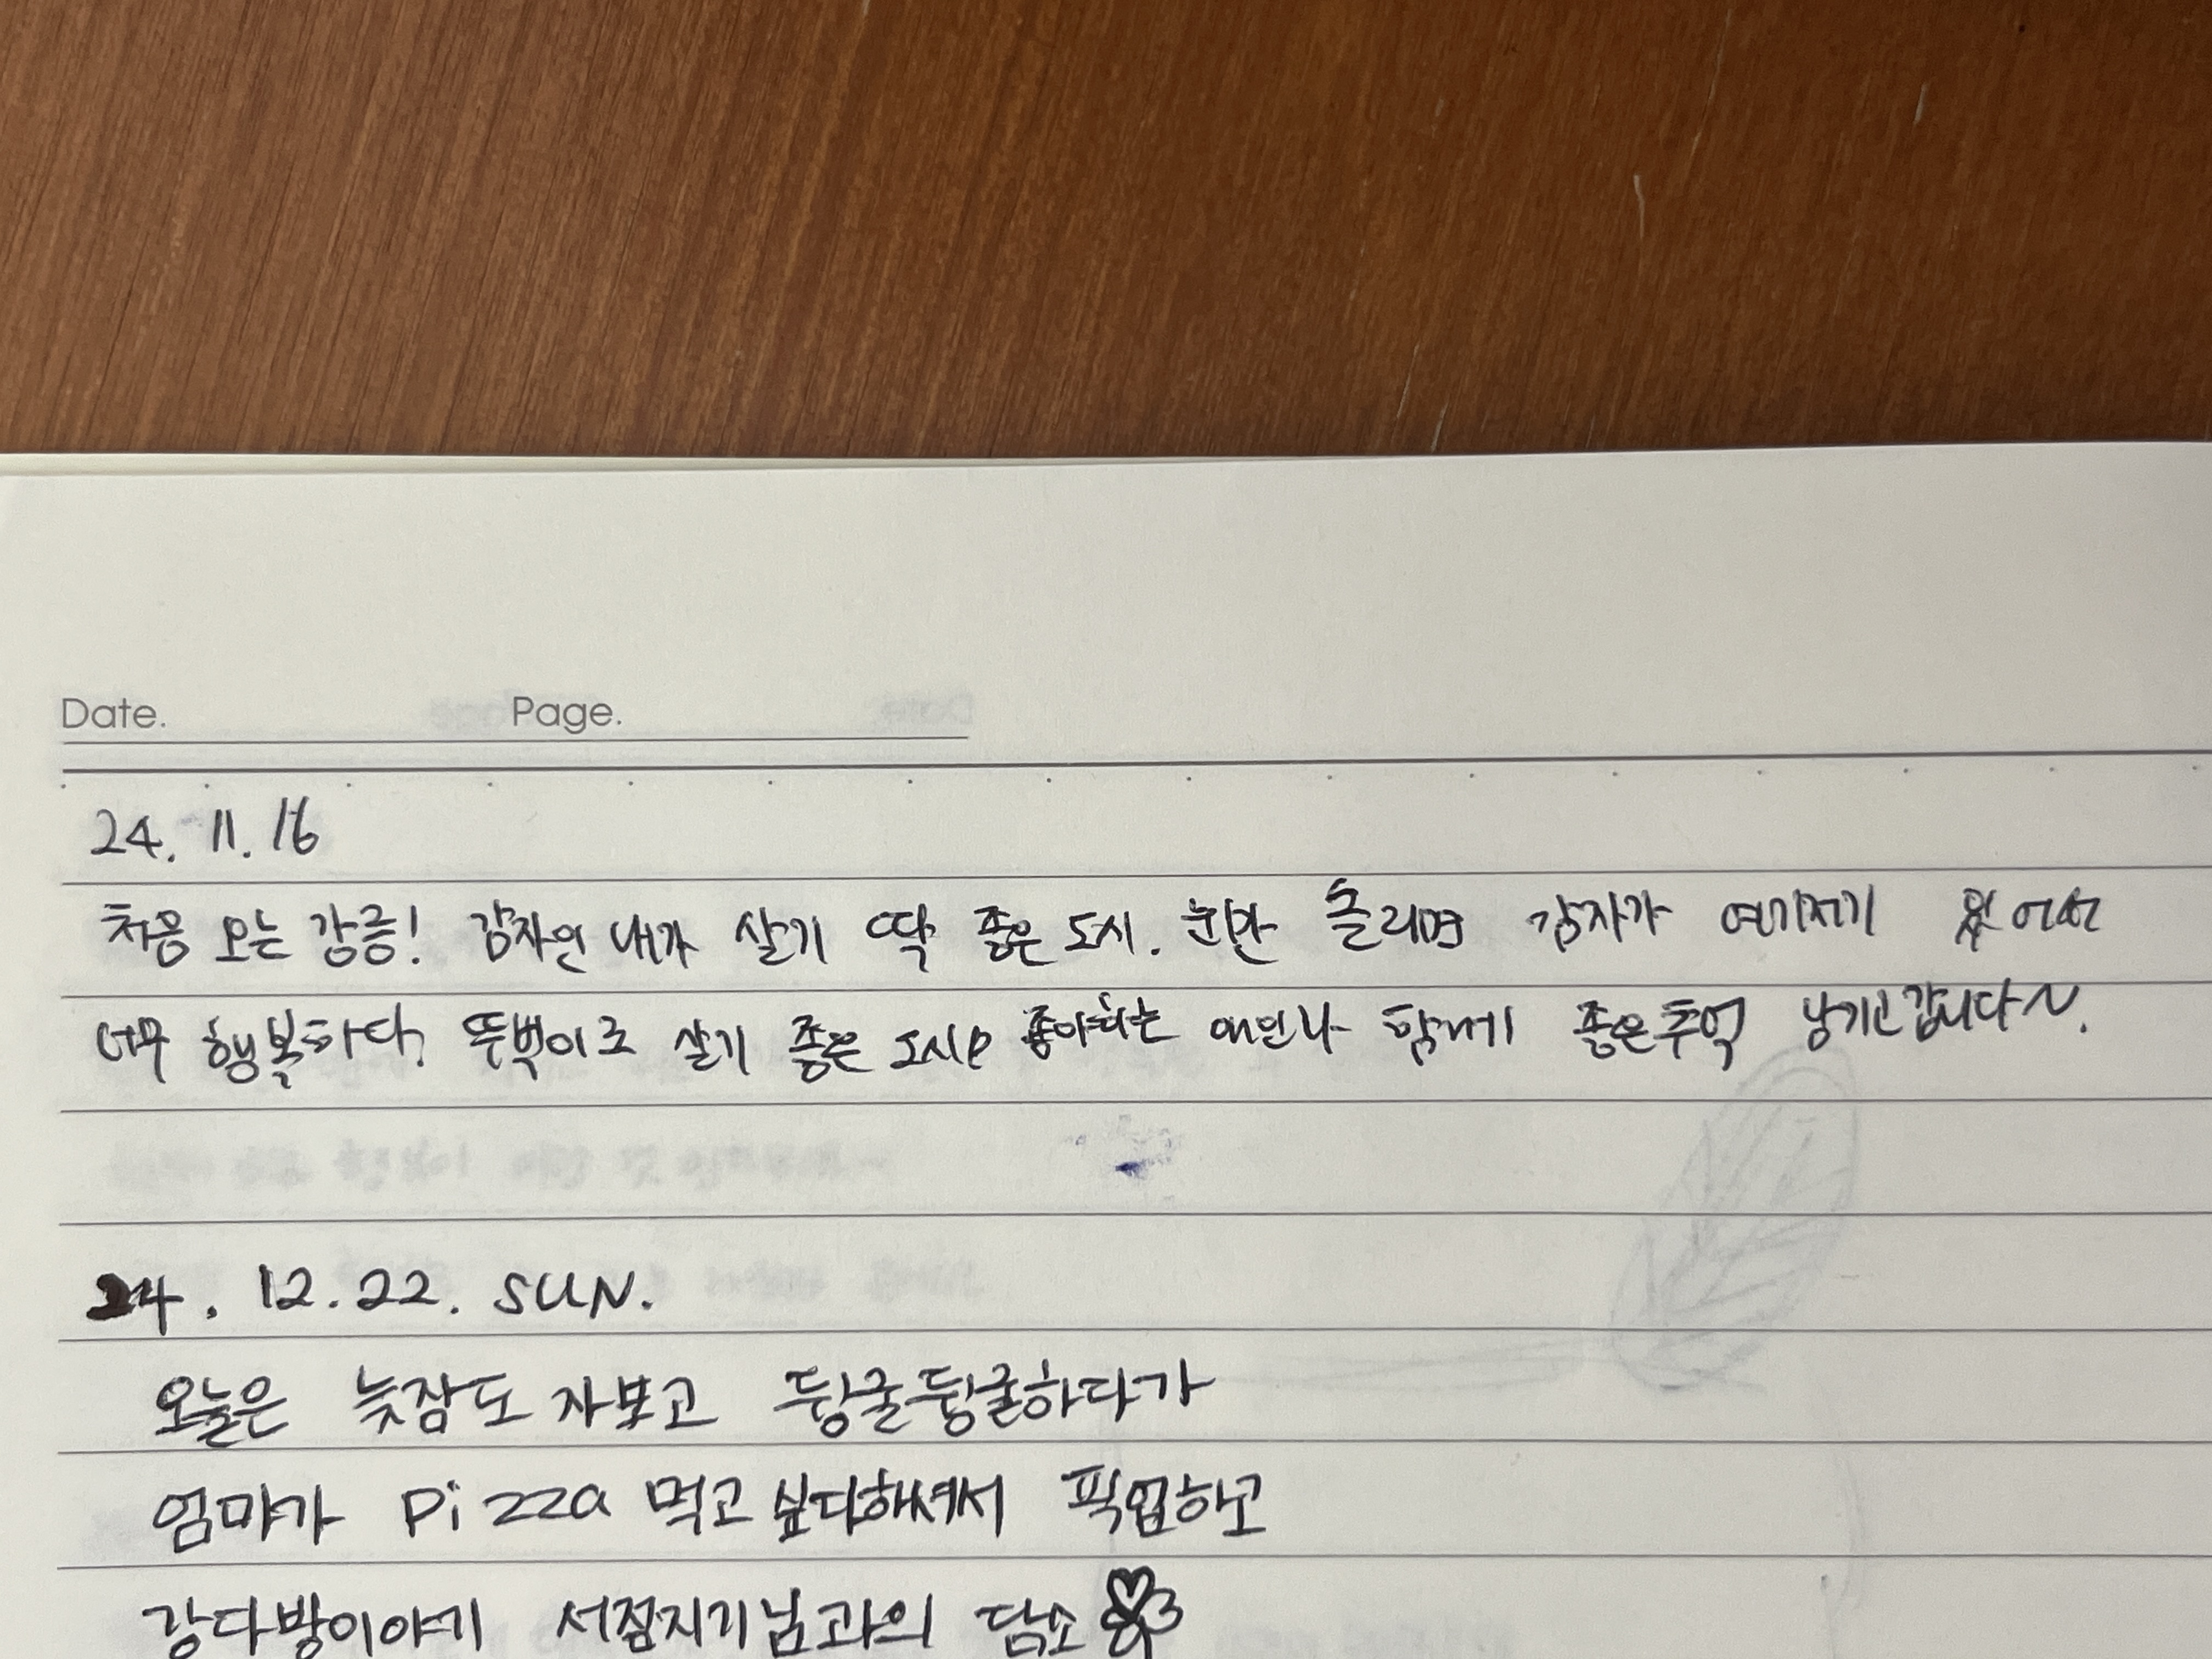 Date. Page.
24. 11. 16
처음 오는 강릉! 감자인 내가 살기 딱 좋은 도시. 눈만 돌리면 감자가 여기저기 있어서
너무 행복하다. 뚜벅이로 살기 좋은 도시인 좋아하는 애인과 함께 좋은추억 남기고갑니다~.
24. 12. 22. SUN.
오늘은 늦잠도 자보고 뒹굴뒹굴하다가
엄마가 Pizza 먹고싶다하셔서 픽업하고
강다방이야기 서점지기님과의 담소